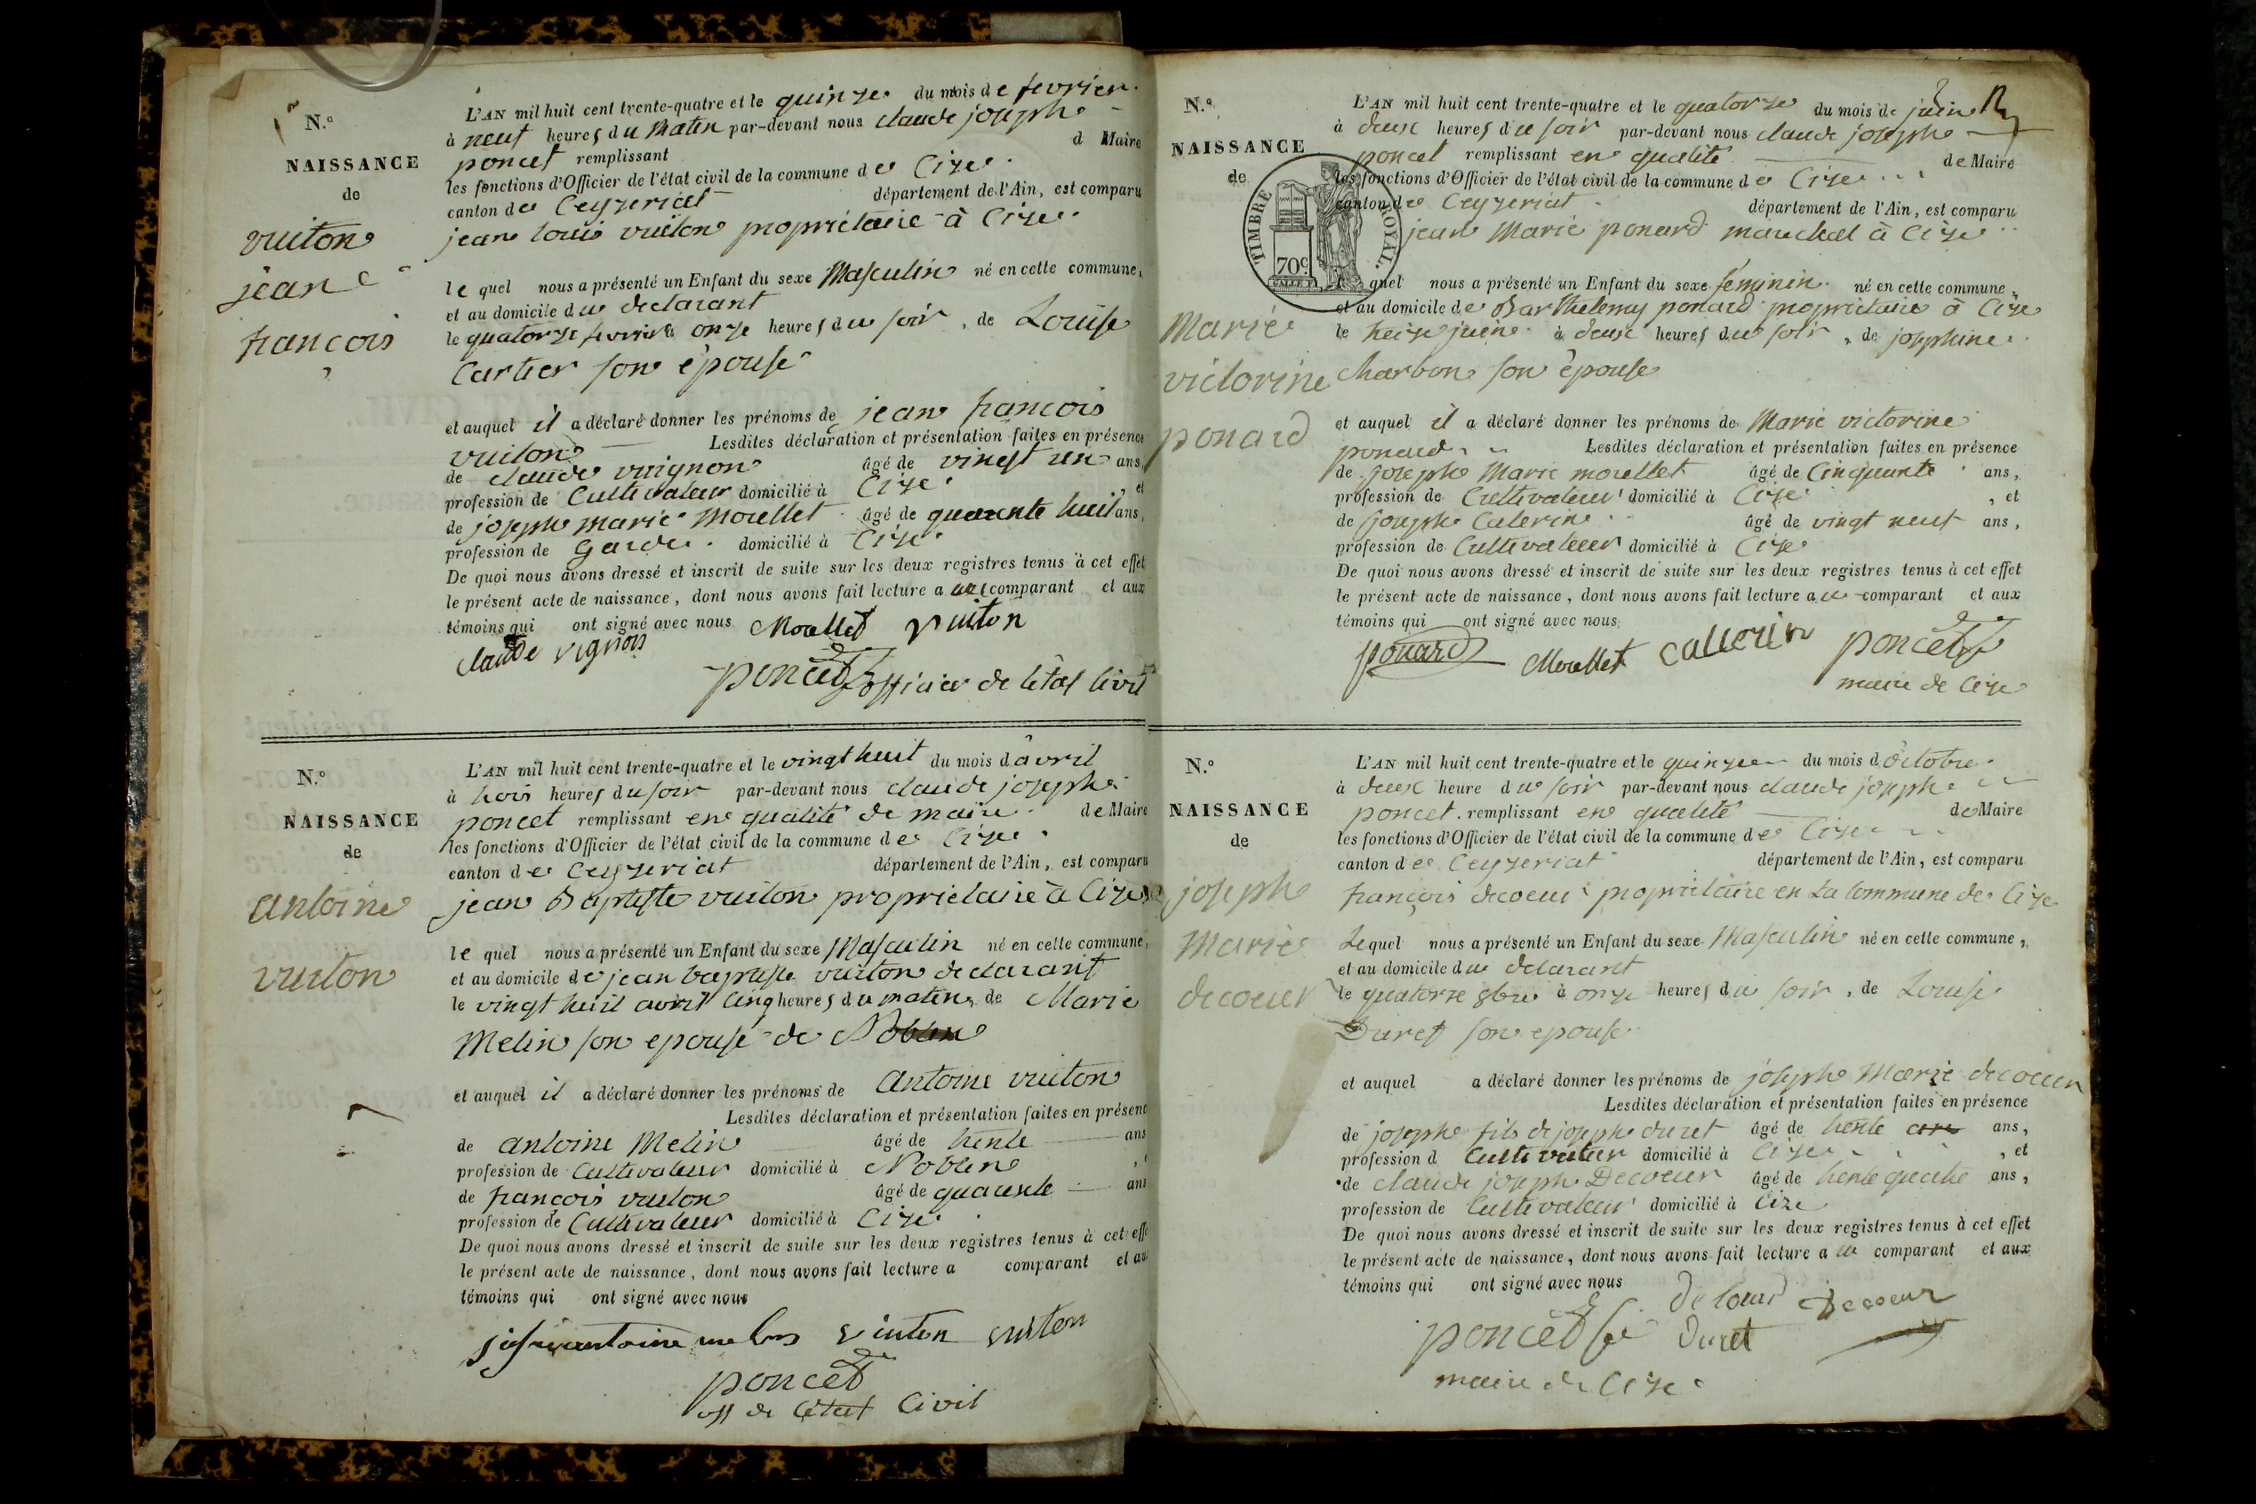 N.º
NAISSANCE
de
vuiton
jean
françois
L'AN mil huit cent trente-quatre et le quinze du mois de fevrier
à neuf heures du Matin par-devant nous claude joseph
poncet remplissant d Maire
les fonctions d'Officier de l'état civil de la commune de Cize
canton de Ceyzeriat département de l'Ain, est comparu
jean louis vuiton propriétaire à Cize
le quel nous a présenté un Enfant du sexe Masculin né en cette commune,
et au domicile du declarant
le quatorze fevrier à onze heures du soir, de Louise
Cartier son épouse
et auquel il a déclaré donner les prénoms de jean francois
vuiton Lesdites déclaration et présentation faites en présence
de claude vuignon âgé de vingt un ans,
profession de Cultivateur domicilié à Cize, et
de joseph marie Moullet âgé de quarante huit ans,
profession de Garde domicilié à Cize
De quoi nous avons dressé et inscrit de suite sur les deux registres tenus à cet effet
le présent acte de naissance, dont nous avons fait lecture a comparant et aux
témoins qui ont signé avec nous Moullet vuiton
claude vignon
poncet officier de l'état Civil
N.º
NAISSANCE
de
antoine
vuiton
L'AN mil huit cent trente-quatre et le vingt huit du mois d avril
à trois heures du soir par-devant nous claude joseph
poncet remplissant en qualité de maire de Maire
les fonctions d'Officier de l'état civil de la commune de Cize
canton de Ceyzeriat département de l'Ain, est comparu
jean Baptiste vuiton propriétaire à Cize
le quel nous a présenté un Enfant du sexe Masculin né en cette commune,
et au domicile de jean baptiste vuiton declarant
le vingt huit avril cinq heures du matin, de Marie
Melin son epouse de Noblen
et auquel il a déclaré donner les prénoms de Antoine vuiton
Lesdites déclaration et présentation faites en présence
de antoine Melin âgé de trente ans
profession de Cultivateur domicilié à Noblen
de francois vuiton âgé de quarante ans
profession de Cultivateur domicilié à Cize
De quoi nous avons dressé et inscrit de suite sur les deux registres tenus à cet effe
le présent acte de naissance, dont nous avons fait lecture a comparant et au
témoins qui ont signé avec nous
vuiton vuiton
poncet
off de l'état Civil
N.º
NAISSANCE
de
TIMBRE ROYAL.
70c
Marie
victorine
ponard
L'AN mil huit cent trente-quatre et le quatorze du mois de juin
à deux heures du soir par-devant nous claude joseph
poncet remplissant en qualité de Maire
les fonctions d'Officier de l'état civil de la commune de Cize
canton de Ceyzeriat département de l'Ain, est comparu
jean Marie ponard marechal à Cize
le quel nous a présenté un Enfant du sexe féminin né en cette commune,
et au domicile de Barthelemy ponard propriétaire à Cize
le treize juin à deux heures du soir, de josephine
charbon son épouse
et auquel il a déclaré donner les prénoms de Marie victorine
ponard Lesdites déclaration et présentation faites en présence
de joseph Marie moullet âgé de Cinquante ans,
profession de Cultivateur domicilié à Cize, et
de joseph Caterin âgé de vingt neuf ans,
profession de Cultivateur domicilié à Cize
De quoi nous avons dressé et inscrit de suite sur les deux registres tenus à cet effet
le présent acte de naissance, dont nous avons fait lecture au comparant et aux
témoins qui ont signé avec nous
ponard Moullet catterin poncet
maire de Cize
N.º
NAISSANCE
de
joseph
Marie
decoeur
L'AN mil huit cent trente-quatre et le quinze du mois d octobre
à deux heure du soir par-devant nous claude joseph
poncet remplissant en qualité de Maire
les fonctions d'Officier de l'état civil de la commune de Cize
canton de Ceyzeriat département de l'Ain, est comparu
françois decoeur propriétaire en La Commune de Cize
Lequel nous a présenté un Enfant du sexe Masculin né en cette commune,
et au domicile du declarant
le quatorze 8bre à onze heures du soir, de Louise
Duret son epouse
et auquel a déclaré donner les prénoms de joseph Marie decoeur
Lesdites déclaration et présentation faites en présence
de joseph fils de joseph duret âgé de trente ans,
profession d Cultivateur domicilié à Cize, et
de claude joseph Decoeur âgé de trente quatre ans,
profession de Cultivateur domicilié à Cize
De quoi nous avons dressé et inscrit de suite sur les deux registres tenus à cet effet
le présent acte de naissance, dont nous avons fait lecture au comparant et aux
témoins qui ont signé avec nous
decoeur
poncet duret
maire de Cize